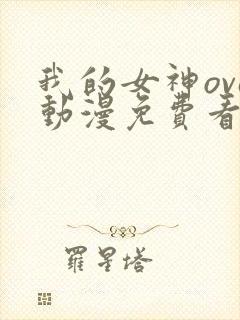 我的女神ova
動漫免費看
羅星塔